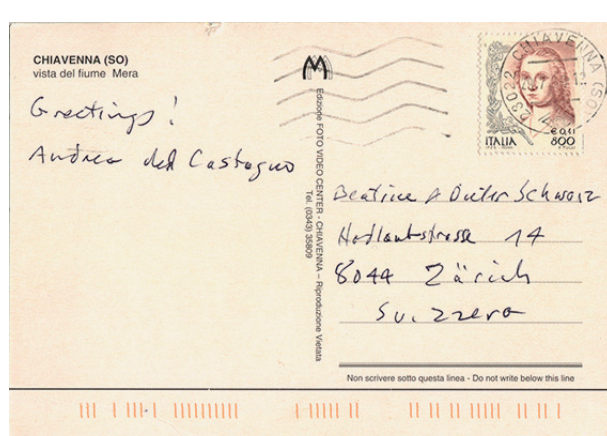 CHIAVENNA (SO)
vista del fiume Mera
Greetings!
Andrea del Castagno
Edizione FOTO VIDEO CENTER - CHIAVENNA - Riproduzione Vietata
Tel. (0343) 35809
CHIAVENNA (SO)
23022
€ 0,41
ITALIA 800
Beatrice & Dieter Schwarz
Hadlaubstrasse 14
8044 Zürich
Svizzera
Non scrivere sotto questa linea - Do not write below this line